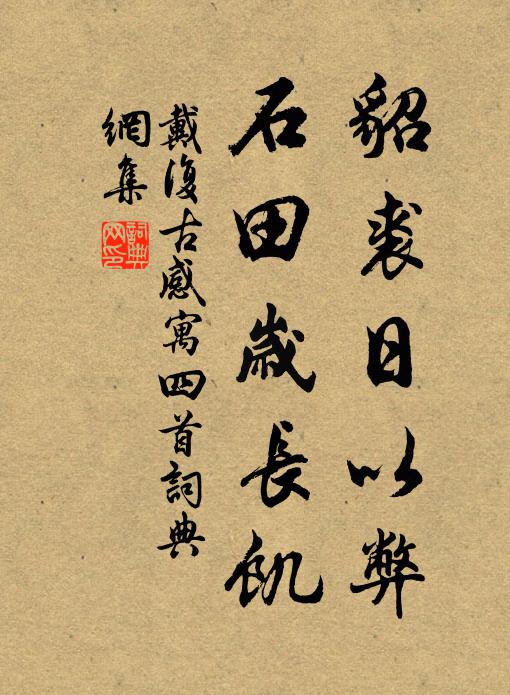 貂裘日以弊
石田歲長飢
戴復古感寓四首詞典
網集
詞典網印